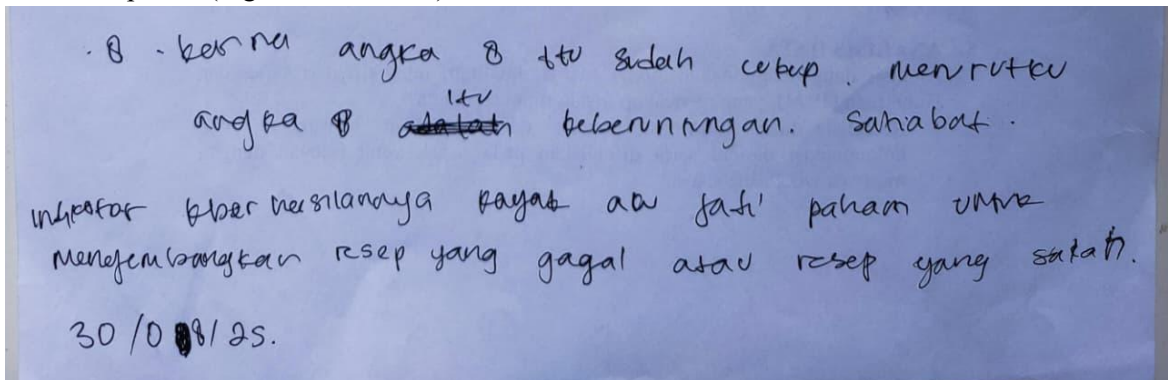 . 8 . karna angka 8 itu sudah cukup. menrutku
itu
angka 8 adalah keberuntungan. sahabat.
indikator keberhasilannya kayak aa jadi paham untuk
mengembangkan resep yang gagal atau resep yang salah.
30/08/25.